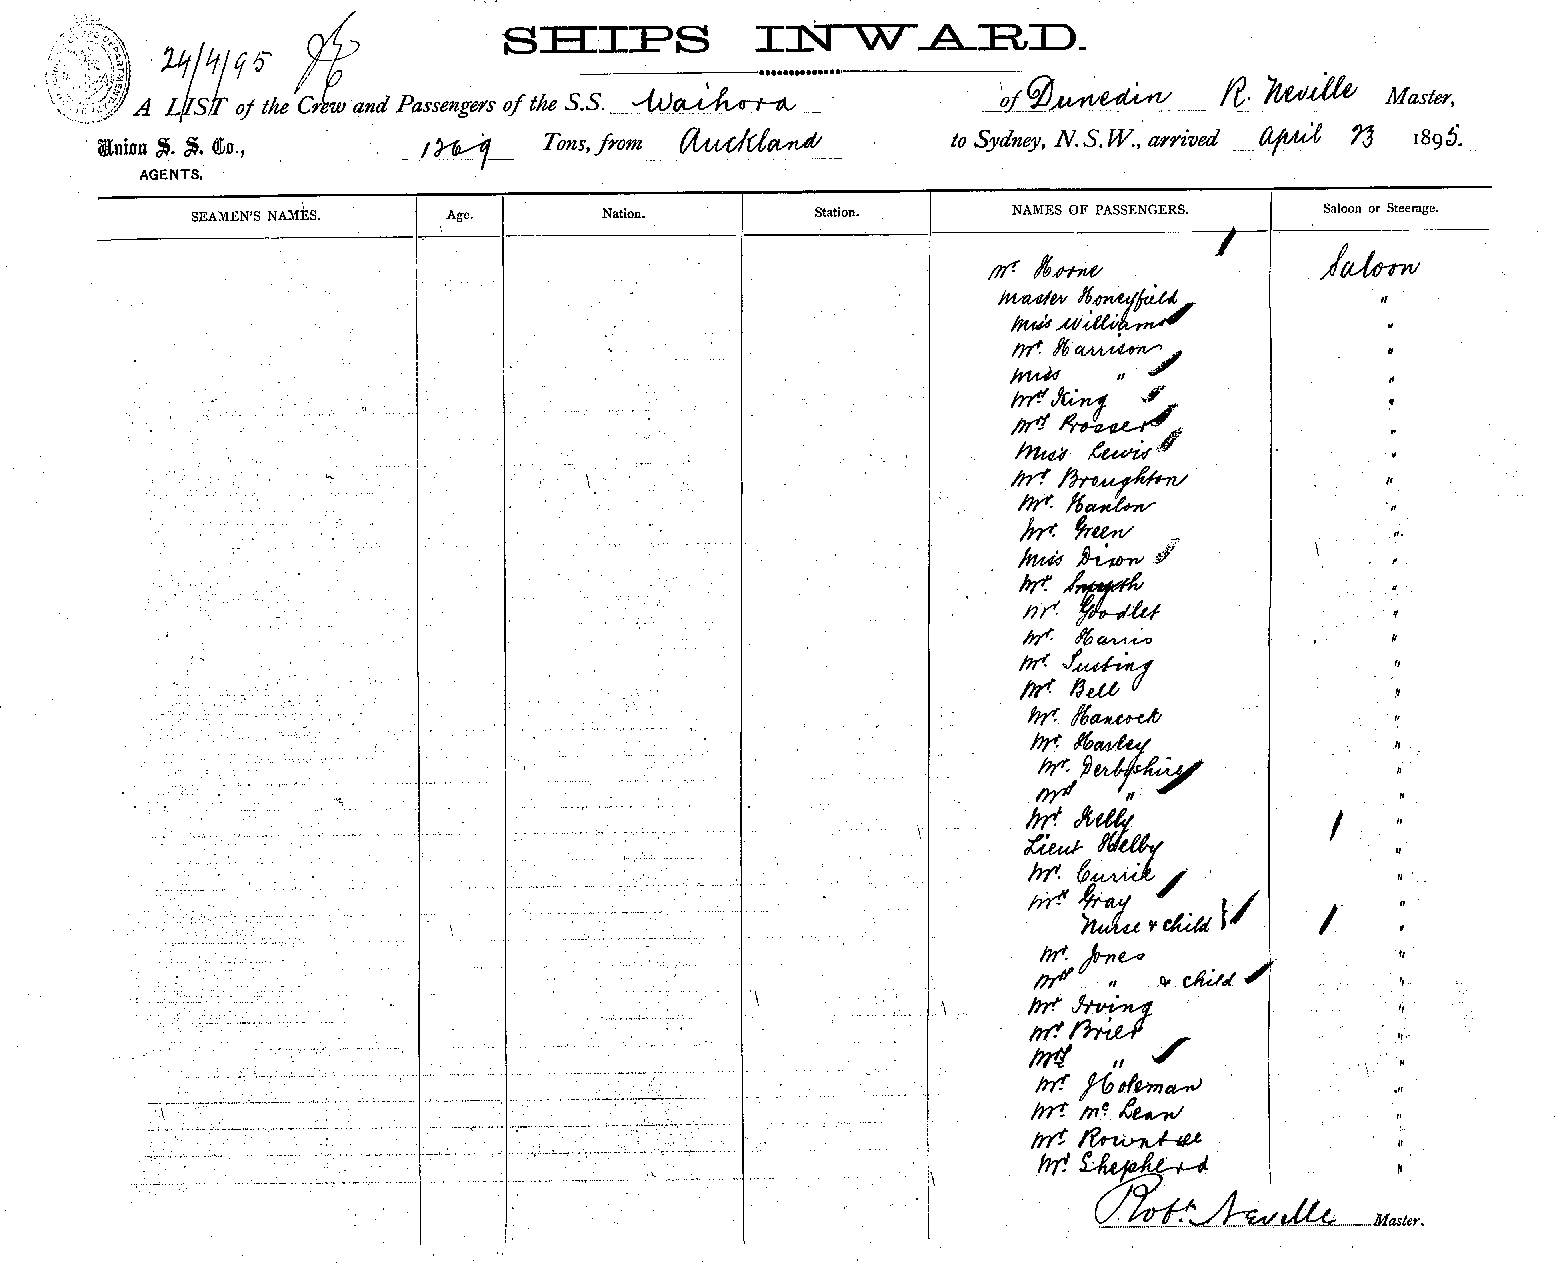 24/4/95
SHIPS INWARD.
A LIST of the Crew and Passengers of the S.S. Waihora of Dunedin R. Neville Master,
Union S. S. Co., 1269 Tons, from Auckland to Sydney, N.S.W., arrived April 23 1895.
AGENTS.
SEAMEN'S NAMES. Age. Nation. Station. NAMES OF PASSENGERS. Saloon or Steerage.
Mr. Horne Saloon
Master Honeyfield "
Miss Williams "
Mr. Harrison "
Miss " "
Mrs King "
Mrs Prosser "
Miss Lewis "
Mr. Broughton "
Mr. Hanlon "
Mr. Green "
Miss Dixon "
Mr. Smyth "
Mr. Goodlet "
Mr. Harris "
Mr. "
Mr. Bell "
Mr. Hancock "
Mr. Harley "
Mr. Derbyshire "
Mrs " "
Mr. Kelly "
Lieut Helby "
Mr. Currie "
Mrs Gray "
Nurse & child "
Mr. Jones "
Mrs " & child "
Mr. Irving "
Mr. Brier "
Mrs " "
Mr. Holeman "
Mr. Mc Lean "
Mr. Rowntree "
Mr. Shepherd "
Robt. Neville Master.